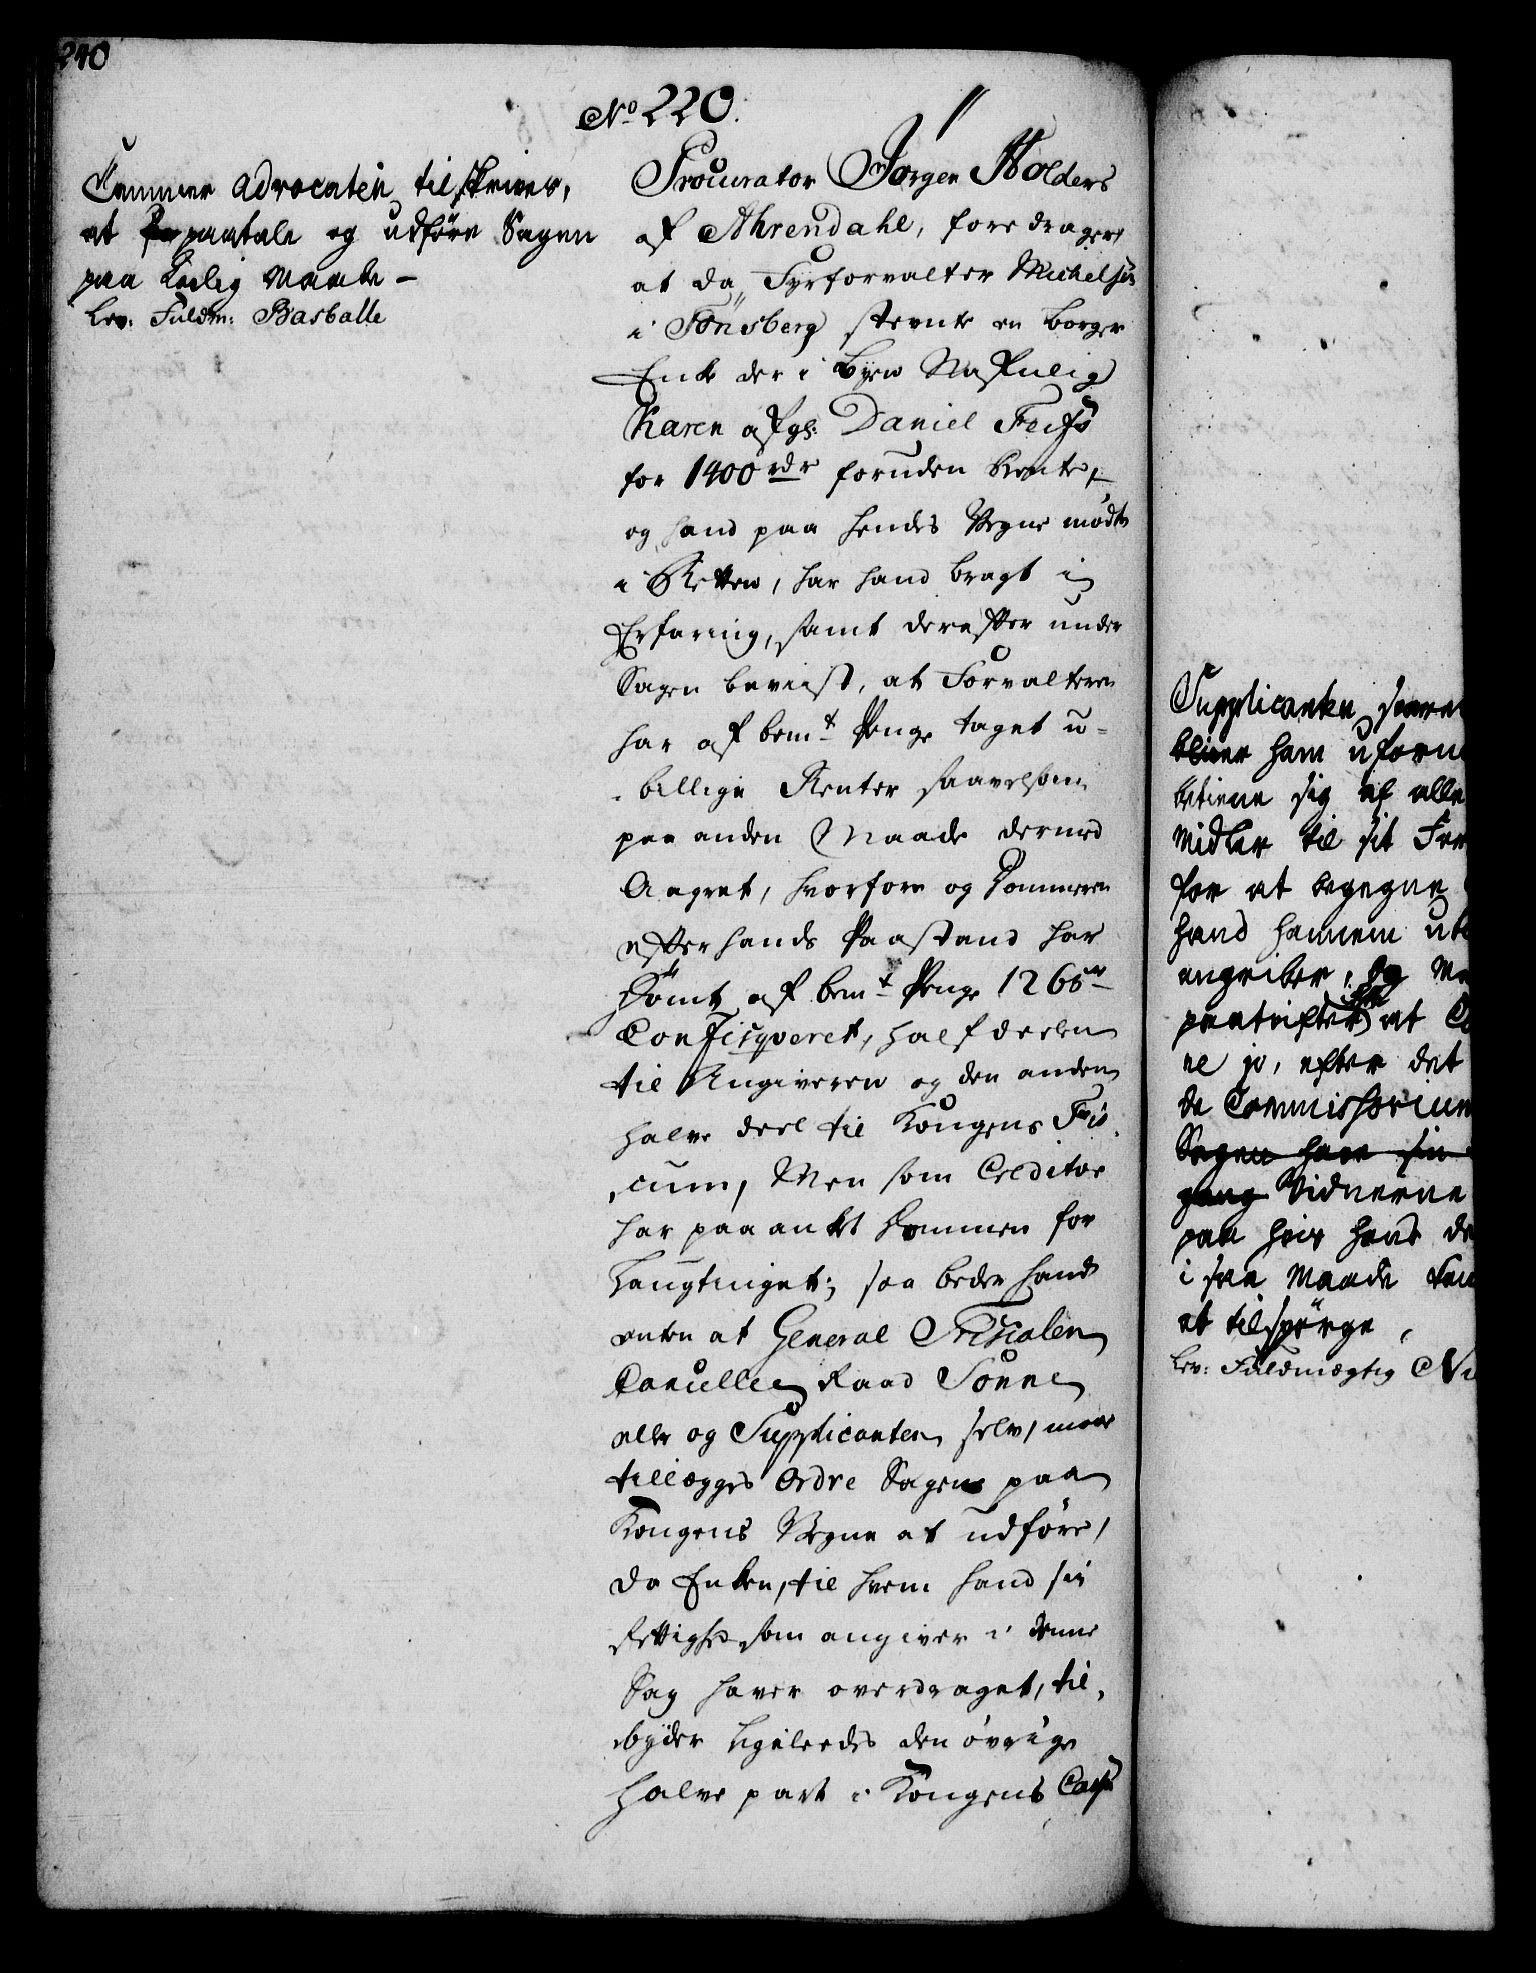 240
No 220.
Cammer Advocaten tilskrives,
at paatale og udføre Sagen
paa Lovlig Maade -
Lev: Fuldm: Basballe
Procurator Jørgen Holders
af Ahrendahl, fore drager,
at da Fyrforvalter Michelsen
i Tønsberg stevnte en borger
Enke der i Byen Nafnlig
Karen afgl: Daniel
for 1400 rdr foruden Rente,
og hand paa hendes Vegne mødte
i Retten, har hand bragt i
Erfaring, samt derefter under
Sagen beviist, at Forvalteren
har af bemt Penge taget u-
billige Renter saavelsom
paa anden Maade dermed
Aagret, hvorfore og Dommeren
efter hands Paastand har
Dømt af bemt Penge 1265 rdr
Confisqveret, half deelen
til Angiveren og den anden
halve deel til Kongens Fis-
cum, Men som Creditor
har paa anket Dommen for
Laugtinget; saa beder hand
enten at General Fiscalen
Cancellie Raad Sønne
eller og Supplicanten selv, maae
tillægges Ordre Sagen paa
Kongens Vegne at udføre,
da Enken, til hvem hand sin
Rettighed som angiver i denne
Sag haver overdraget, til-
byder ligeleedes den øvrige
halve part i Kongens Cassa
Supplicanten
bliver ham uforme
betiene sig af alle
Midler til sit For
for at begegne
hand hannem
angriber, og
at
ne jo, efter det
de Commissorium
Sagen have sin
gang Vidnerne
paa hvis hand
i saa Maade
at tilspørge,
Lev: Fuldmægtig